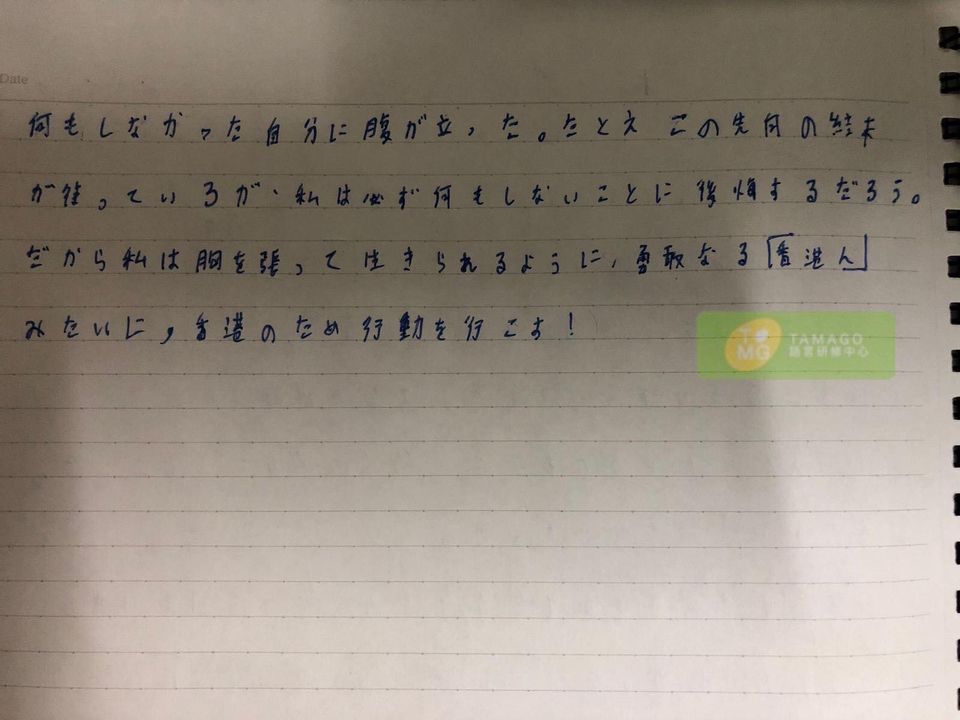 Date
何もしなかった自分に腹が立った。たとえこの先何の結末
が待っていろが、私は必ず何もしないことに後悔するだろう。
だから私は胸を張って生きられるように、勇敢なる「香港人」
みたいに,香港のため行動を行こす!
TAMAGO
語言研修中心